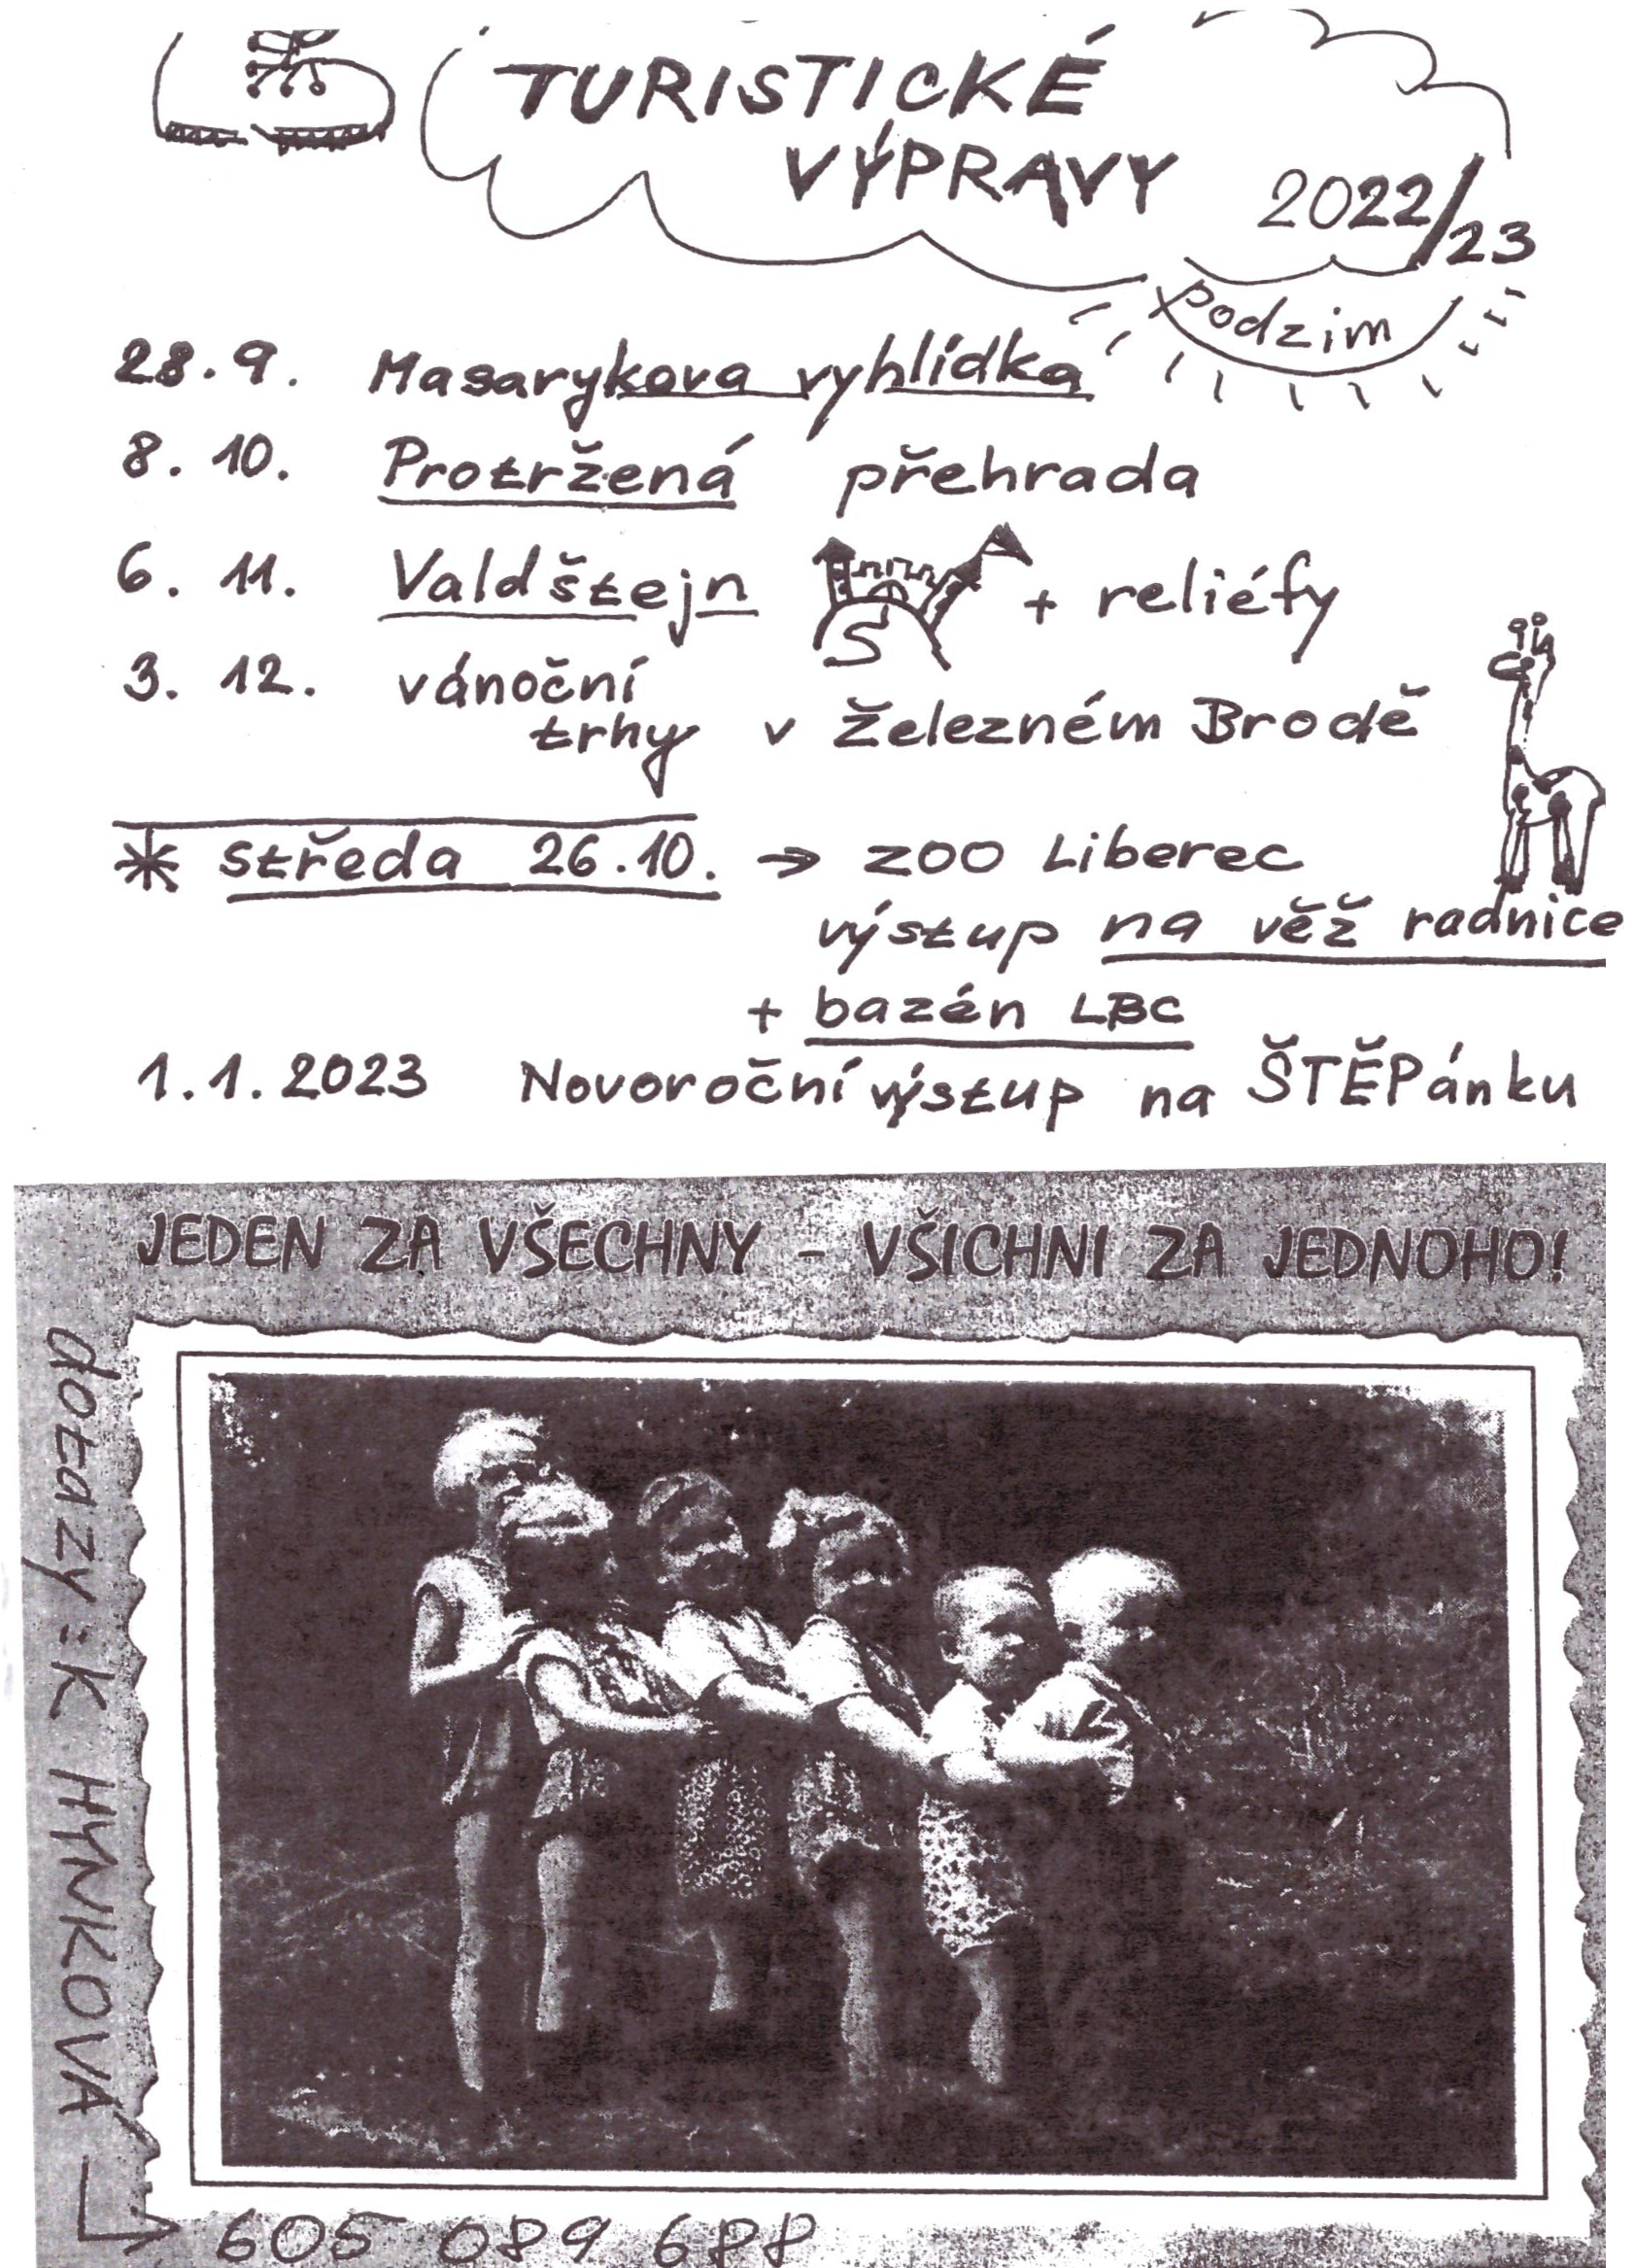 TURISTICKÉ
VÝPRAVY 2022/23
podzim
28.9. Masarykova vyhlídka
8.10. Protržená přehrada
6.11. Valdštejn + reliéfy
3.12. vánoční
trhy v Železném Brodě
* středa 26.10. → ZOO Liberec
výstup na věž radnice
+ bazén LBC
1.1.2023 Novoroční výstup na ŠTĚPánku
JEDEN ZA VŠECHNY - VŠICHNI ZA JEDNOHO!
dotazy: K HYNKOVÁ
605 089 688